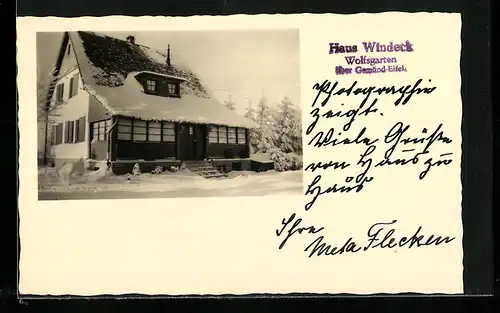 Haus Windeck
Wolfsgarten
über Gemünd-Eifel.
Photographie
zeigt.
Viele Grüße
von Haus zu
Haus
Ihre
Meta Flecken